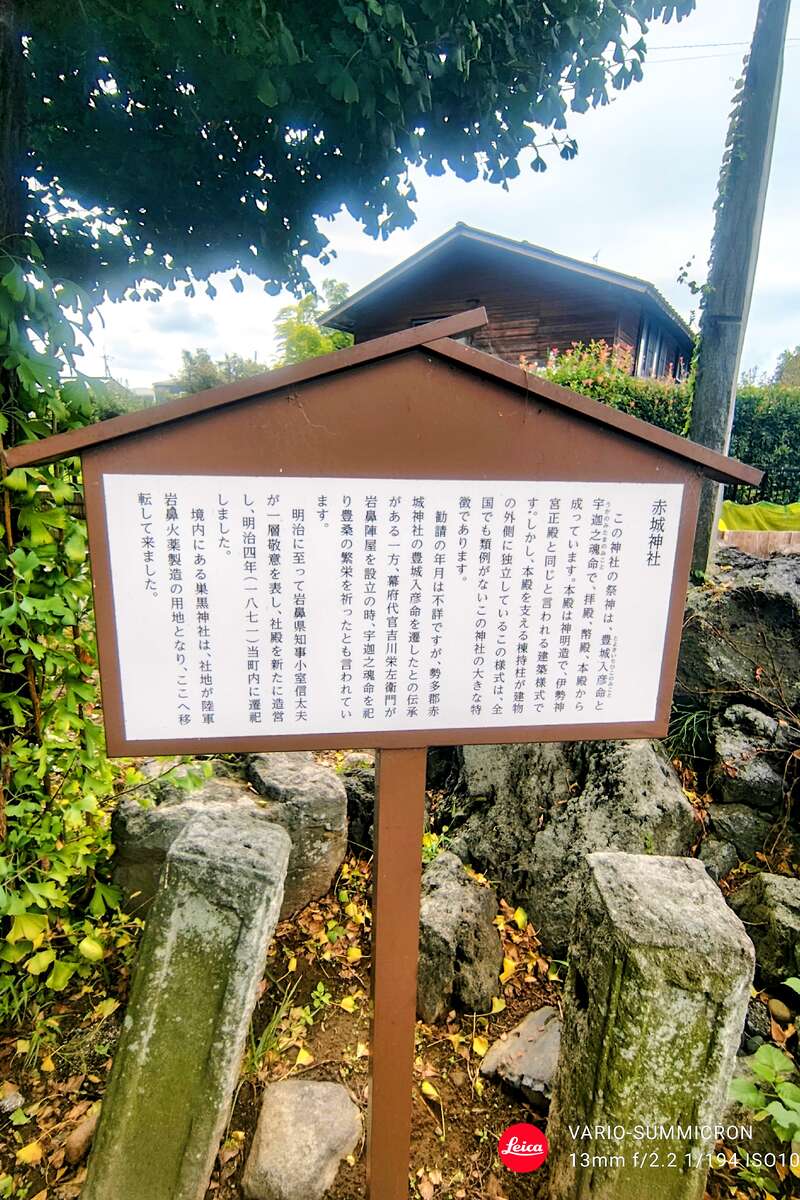 赤城神社
この神社の祭神は、豊城入彦命と
宇迦之魂命で、拝殿、幣殿、本殿から
成っています。本殿は神明造で、伊勢神
宮正殿と同じと言われる建築様式で
す。しかし、本殿を支える棟持柱が建物
の外側に独立しているこの様式は、全
国でも類例がないこの神社の大きな特
徴であります。
勧請の年月は不詳ですが、勢多郡赤
城神社の豊城入彦命を遷したとの伝承
がある一方、幕府代官吉川栄左衛門が
岩鼻陣屋を設立の時、宇迦之魂命を祀
り豊桑の繁栄を祈ったとも言われてい
ます。
明治に至って岩鼻県知事小室信太夫
が一層敬意を表し、社殿を新たに造営
し、明治四年(一八七一)当町内に遷祀
しました。
境内にある巣黒神社は、社地が陸軍
岩鼻火薬製造の用地となり、ここへ移
転して来ました。
Leica
VARIO-SUMMICRON
13mm f/2.2 1/194 ISO10